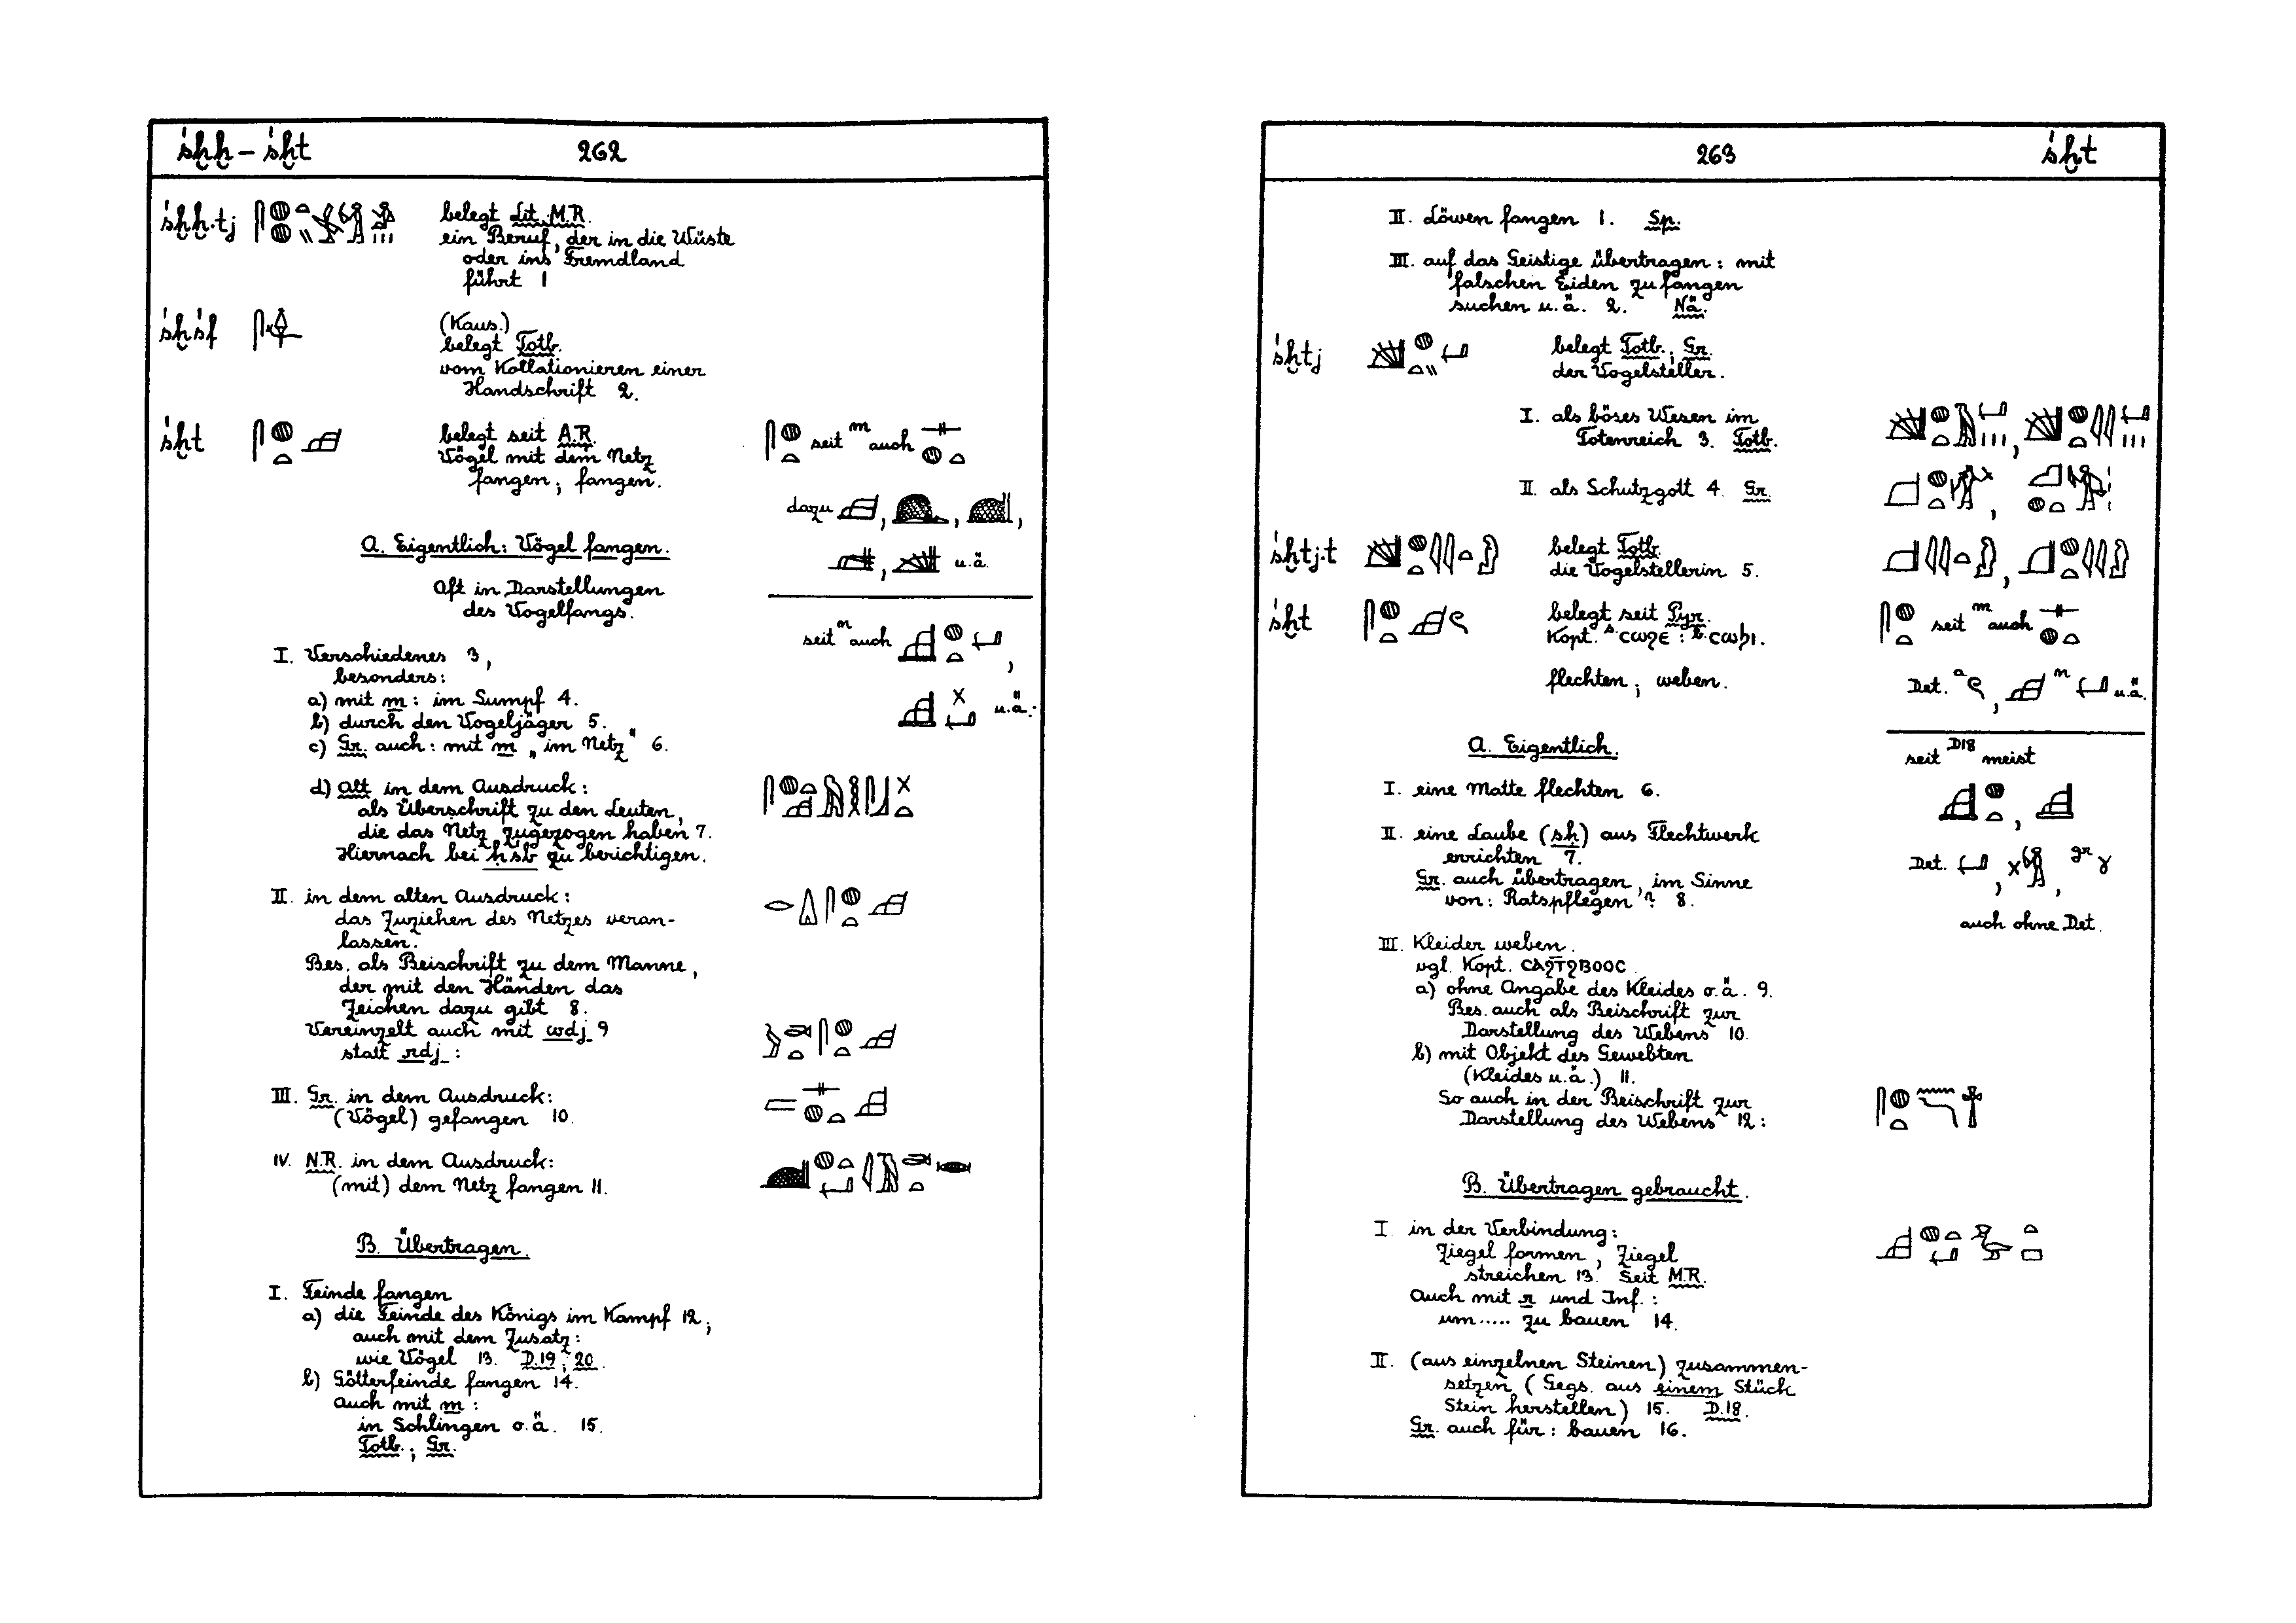 śḫḫ – śḫt 262
śḫḫ·tj belegt Lit. M.R.
ein Beruf, der in die Wüste
oder ins Fremdland
führt 1
śḫśf (Kaus.)
belegt Totb.
vom Kollationieren einer
Handschrift 2.
śḫt belegt seit A.R.
Vögel mit dem Netz
fangen; fangen.
seit m auch
dazu
u.ä.
seit m auch
u.ä.
A. Eigentlich: Vögel fangen.
Oft in Darstellungen
des Vogelfangs.
I. Verschiedenes 3,
besonders:
a) mit m: im Sumpf 4.
b) durch den Vogeljäger 5.
c) Gr. auch: mit m „im Netz" 6.
d) alt in dem Ausdruck:
als Überschrift zu den Leuten,
die das Netz zugezogen haben 7.
Hiernach bei ḥsb zu berichtigen.
II. in dem alten Ausdruck:
das Zuziehen des Netzes veran-
lassen.
Bes. als Beischrift zu dem Manne,
der mit den Händen das
Zeichen dazu gibt 8.
Vereinzelt auch mit wdj 9
statt rdj:
III. Gr. in dem Ausdruck:
(Vögel) gefangen 10.
IV. N.R. in dem Ausdruck:
(mit) dem Netz fangen 11.
B. Übertragen.
I. Feinde fangen
a) die Feinde des Königs im Kampf 12;
auch mit dem Zusatz:
wie Vögel 13. D.19; 20.
b) Götterfeinde fangen 14.
auch mit m:
in Schlingen o.ä. 15.
Totb.; Gr.
263 śḫt
II. Löwen fangen 1. Sp.
III. auf das Geistige übertragen: mit
falschen Eiden zu fangen
suchen u.ä. 2. Nä.
śḫtj belegt Totb.; Gr.
der Vogelsteller.
I. als böses Wesen im
Totenreich 3. Totb.
II. als Schutzgott 4. Gr.
śḫtj·t belegt Totb.
die Vogelstellerin 5.
śḫt belegt seit Pyr.
Kopt. S. ⲥⲱϩⲉ : B. ⲥⲱϧⲓ.
flechten; weben.
seit m auch
Det. a , n u.ä.
seit D18 meist
Det. , , gr
auch ohne Det.
A. Eigentlich.
I. eine Matte flechten 6.
II. eine Laube (sḥ) aus Flechtwerk
errichten 7.
Gr. auch übertragen, im Sinne
von: Ratspflegen? 8.
III. Kleider weben.
vgl. Kopt. ⲥⲁϩⲧ̄ϩⲃⲟⲟⲥ.
a) ohne Angabe des Kleides o.ä. 9.
Bes. auch als Beischrift zur
Darstellung des Webens 10.
b) mit Objekt des Gewebten
(Kleides u.ä.) 11.
So auch in der Beischrift zur
Darstellung des Webens 12:
B. Übertragen gebraucht.
I. in der Verbindung:
Ziegel formen, Ziegel
streichen 13. Seit M.R.
Auch mit r und Inf.:
um..... zu bauen 14.
II. (aus einzelnen Steinen) zusammen-
setzen (Gegs. aus einem Stück
Stein herstellen) 15. D.18.
Gr. auch für: bauen 16.